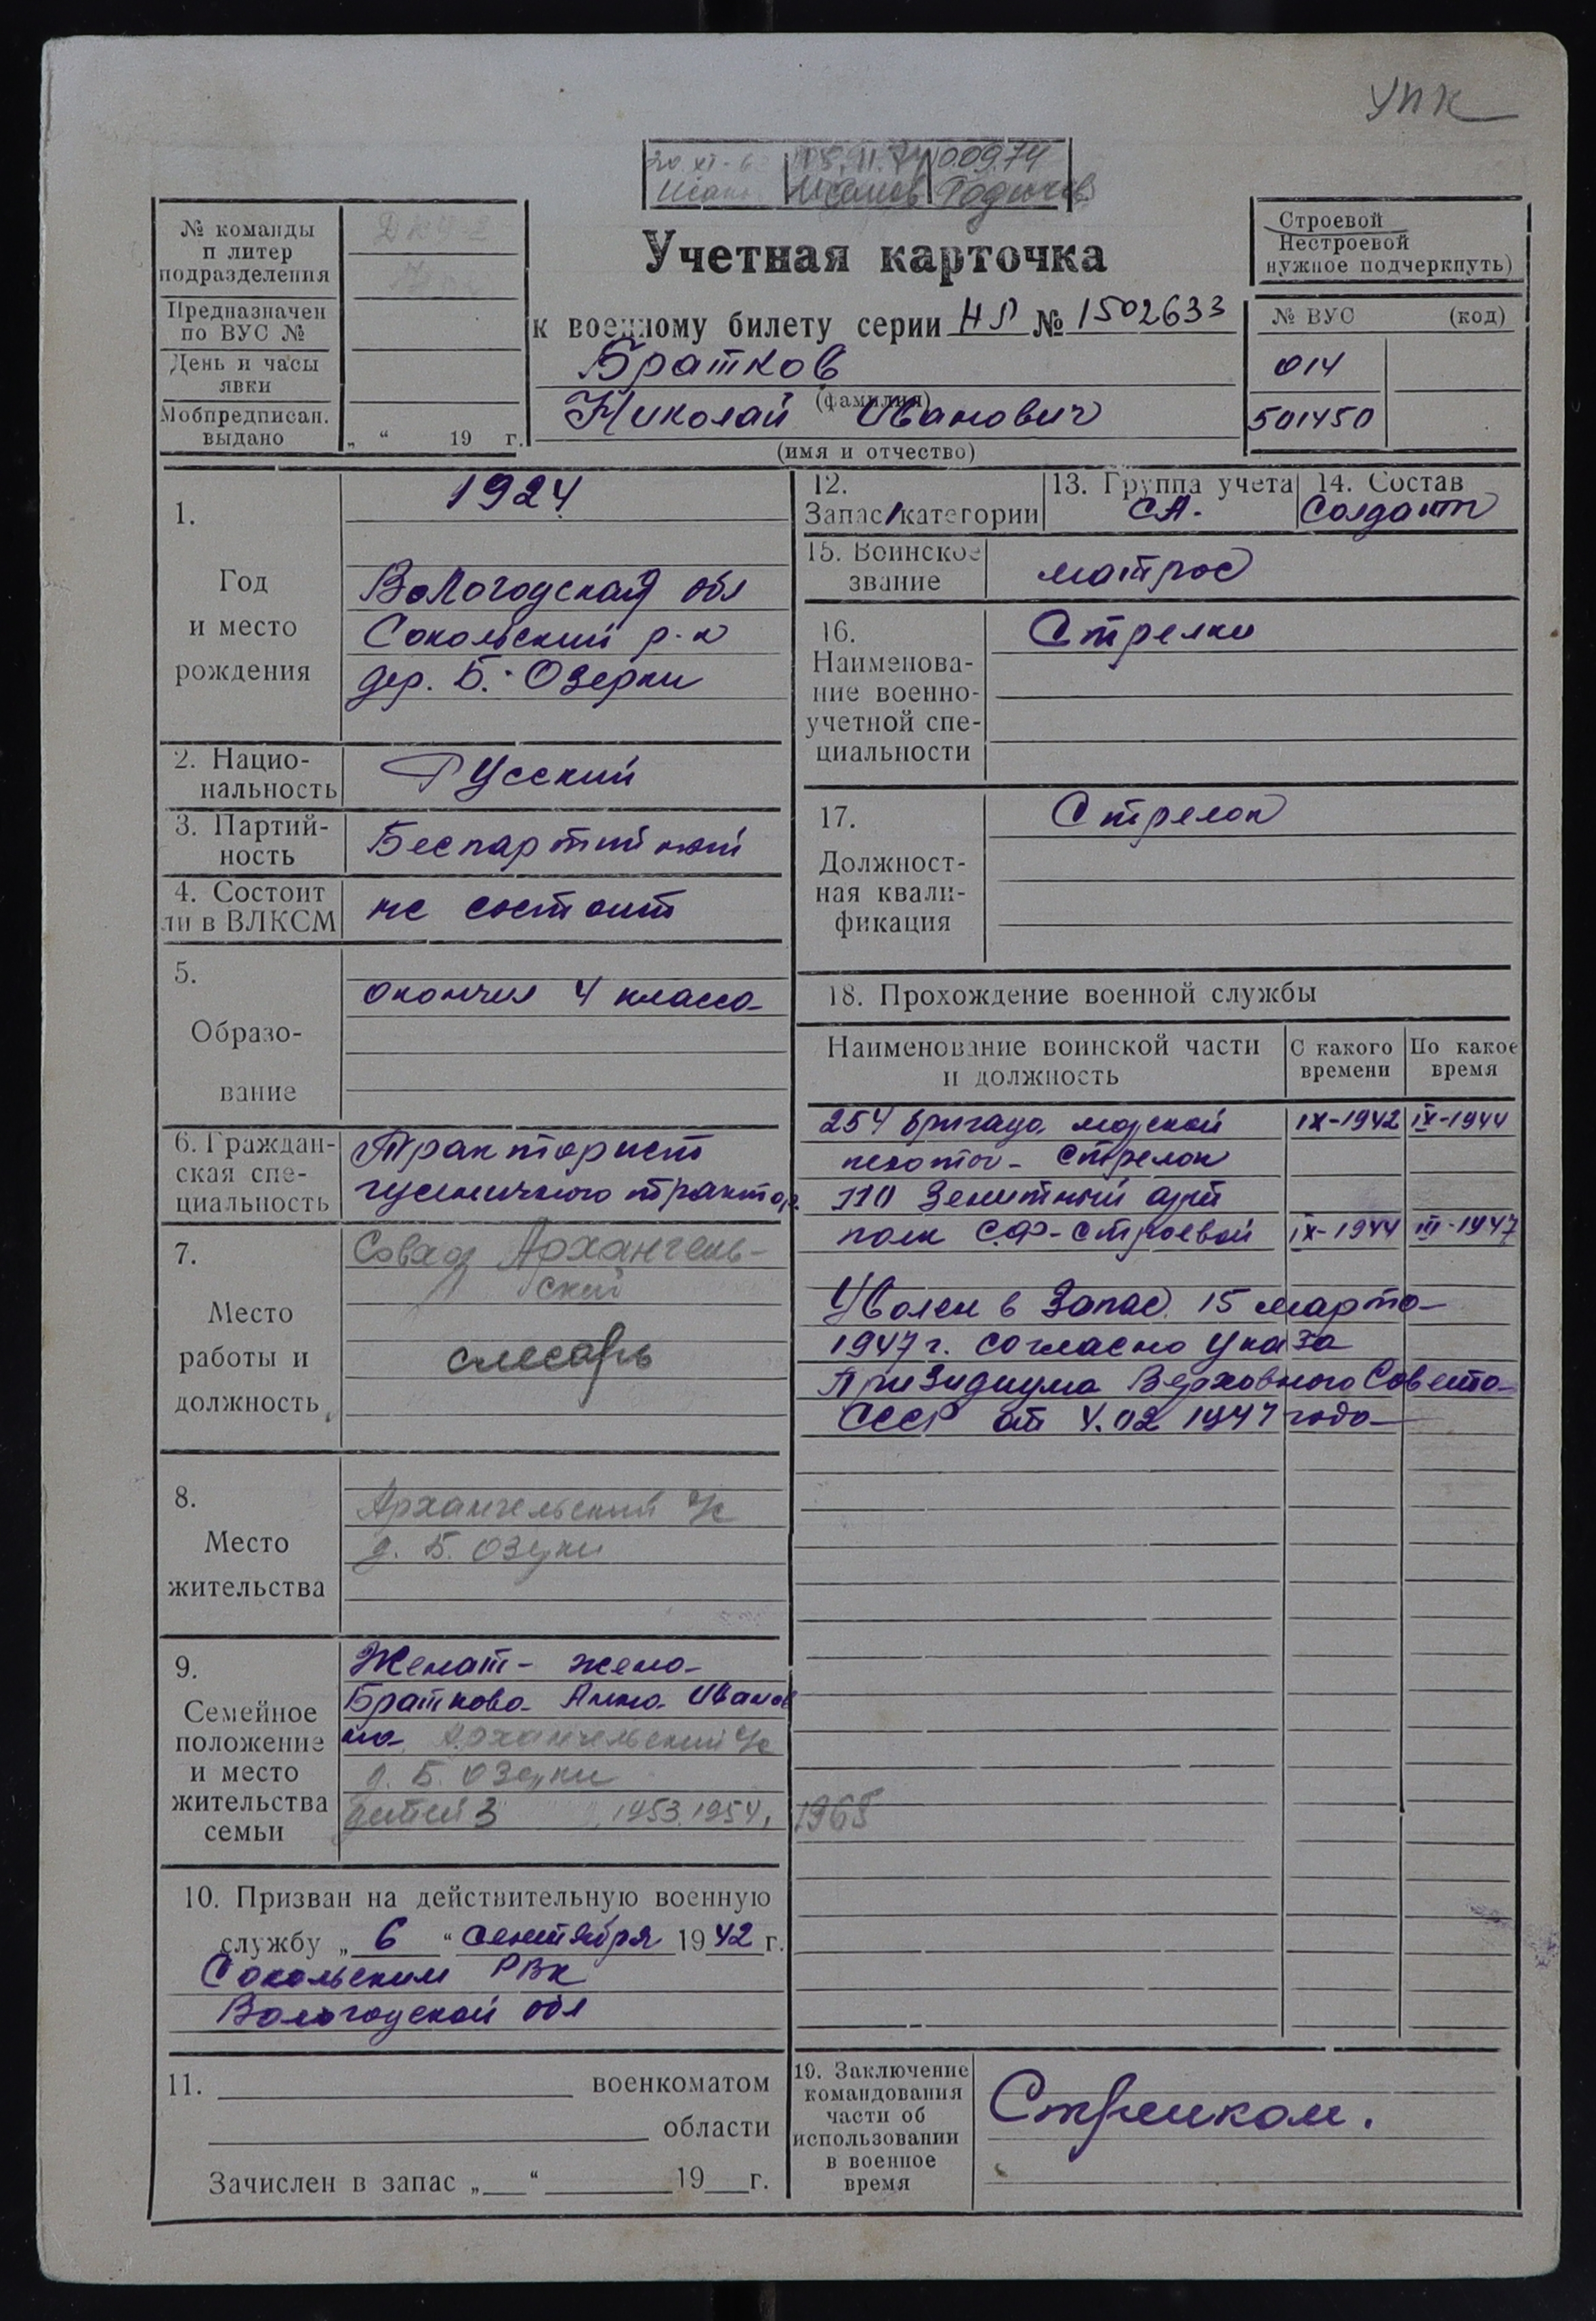 УПК
20 XI-6
10.09.74
Родичев
№ команды
и литер
подразделения
Предназначен
по ВУС №
День и часы
явки
Мобпредписан.
выдано
„ “ 19 г.
Учетная карточка
к военному билету серии НР № 1502633
Братков
(фамилия)
Николай Иванович
(имя и отчество)
Строевой
Нестроевой
нужное подчеркнуть)
№ ВУС (код)
014
501450
1.
Год
и место
рождения
1924
Вологодская обл
Сокольский р-н
дер. Б. Озерки
2. Нацио-
нальность
Русский
3. Партий-
ность
Беспартийный
4. Состоит
ли в ВЛКСМ
не состоит
5.
Образо-
вание
окончил 4 класса
6. Граждан-
ская спе-
циальность
Тракторист
гусеничного трактор.
7.
Место
работы и
должность
Совхоз Архангель-
ский
слесарь
8.
Место
жительства
Архангельский с/с
д. Б. Озерки
9.
Семейное
положение
и место
жительства
семьи
Женат - жена
Браткова Анна Иванов
на Архангельский с/с
д. Б. Озерки
детей 3 1953, 1954, 1965
10. Призван на действительную военную
службу „ 6 “ сентября 1942 г.
Сокольским РВК
Вологодской обл
11. военкоматом
области
Зачислен в запас „ “ 19 г.
12.
Запас 1 категории
13. Группа учета
СА.
14. Состав
Солдат
15. Воинское
звание
матрос
16.
Наименова-
ние военно-
учетной спе-
циальности
Стрелки
17.
Должност-
ная квали-
фикация
Стрелок
18. Прохождение военной службы
Наименование воинской части
и должность
С какого
времени
По какое
время
254 бригада морской IX-1942 IX-1944
пехоты - Стрелок
110 Зенитный арт
полк С.Ф. - Строевой IX-1944 III-1947
Уволен в Запас 15 марта
1947 г. согласно Указа
Призидиума Верховного Совета
СССР от 4.02 1947 года
19. Заключение
командования
части об
использовании
в военное
время
Стрелком.